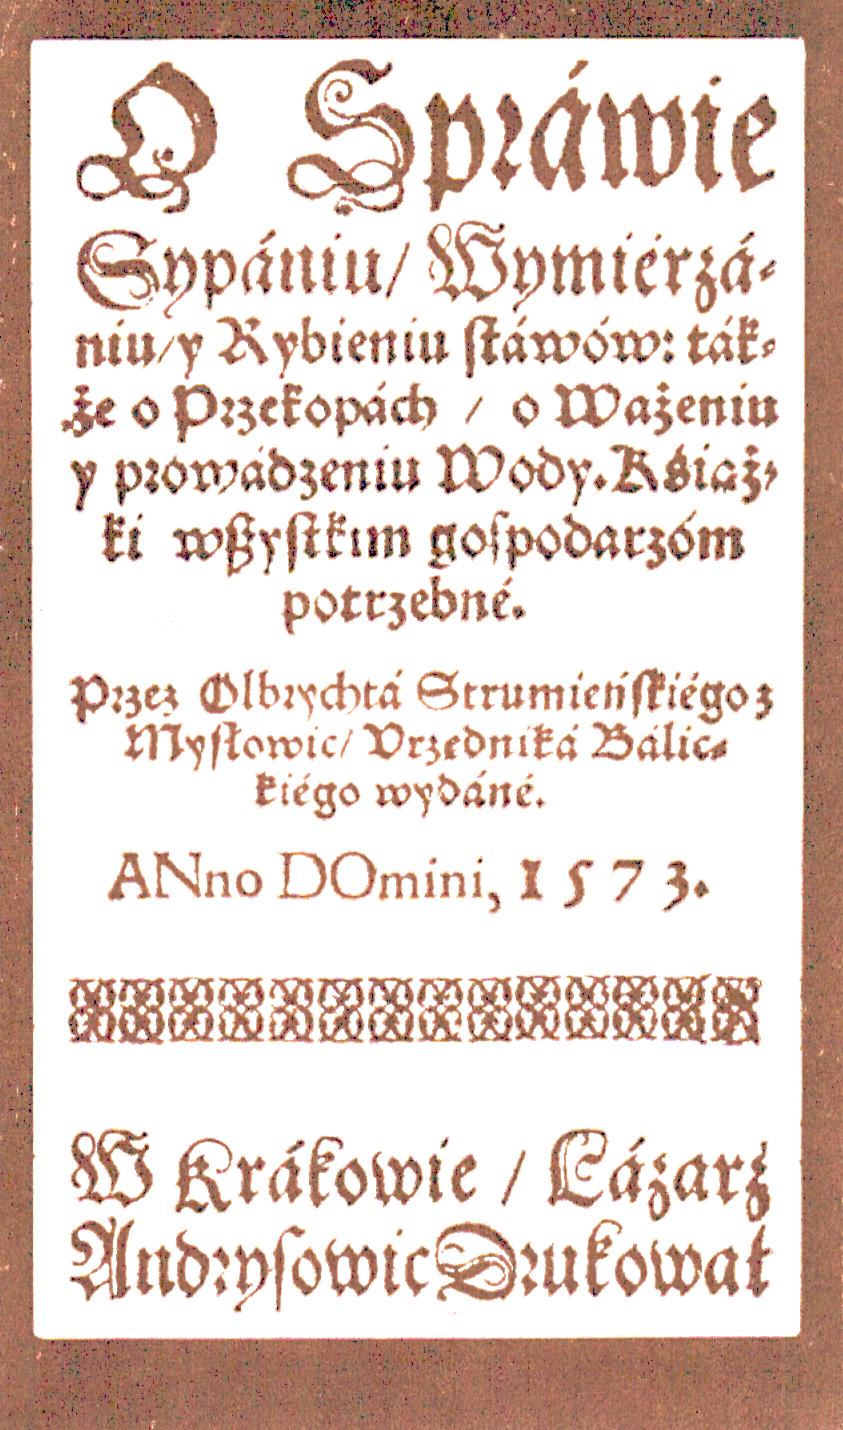 O Spráwie
Sypániu/ Wymiérzá-
niu/y Rybieniu stáwów: ták-
że o Przekopách / o Ważeniu
y prowádzeniu Wody. Kśiąż-
ki wszystkim gospodarzóm
potrzebné.
Przez Olbrychtá Strumieńskiégo z
Mysłowic/ Vrzedniká Bálic-
kiégo wydáné.
ANno DOmini, 1573.
W Krákowie / Łázarz
Andrysowic Drukował